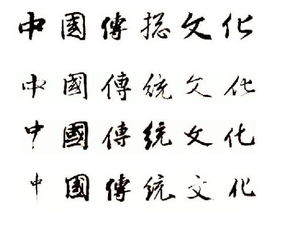 中國傳統文化
中國傳統文化
中國傳統文化
中國傳統文化